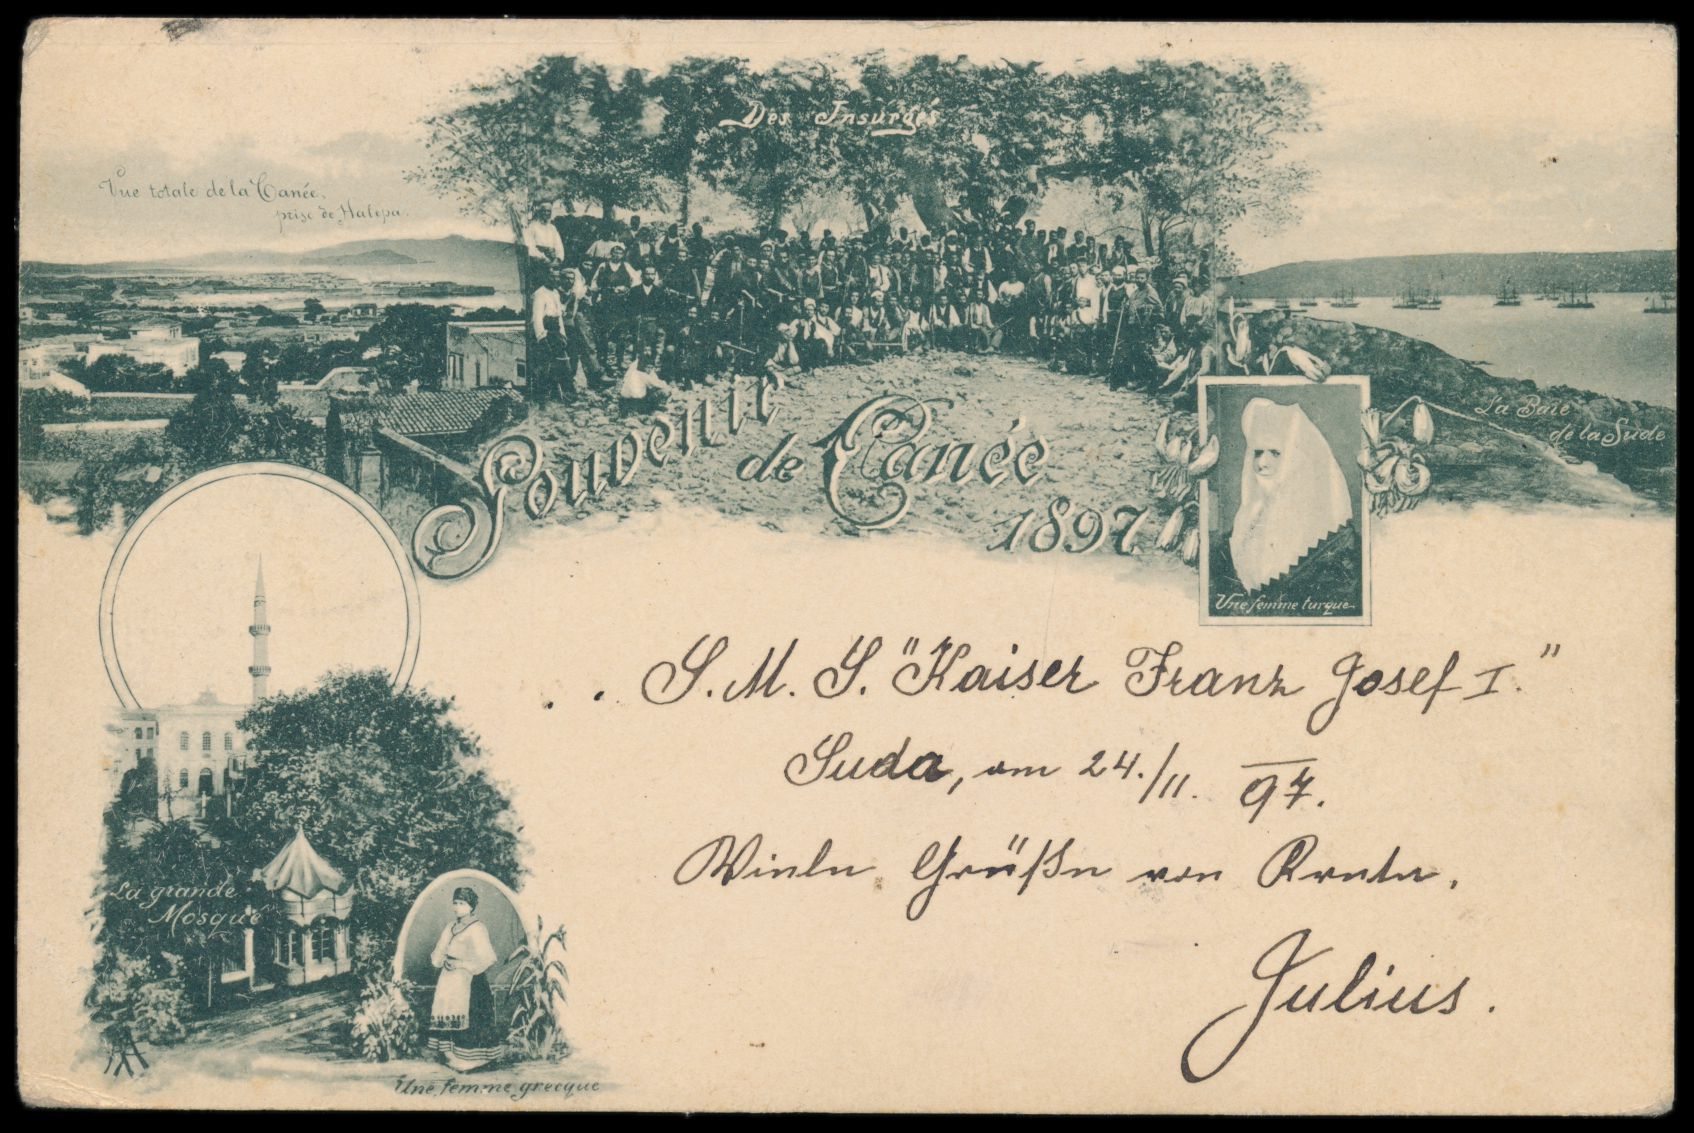 Des Insurgés
Vue totale de la Canée,
prise de Halepa.
Souvenir
de Canée
1897
La Baie
de la Sude
Une femme turque
S. M. S. "Kaiser Franz Josef I."
Suda, am 24./11. 97.
Viele Grüße von Kreta.
Julius.
La grande
Mosqué
Une femme grecque